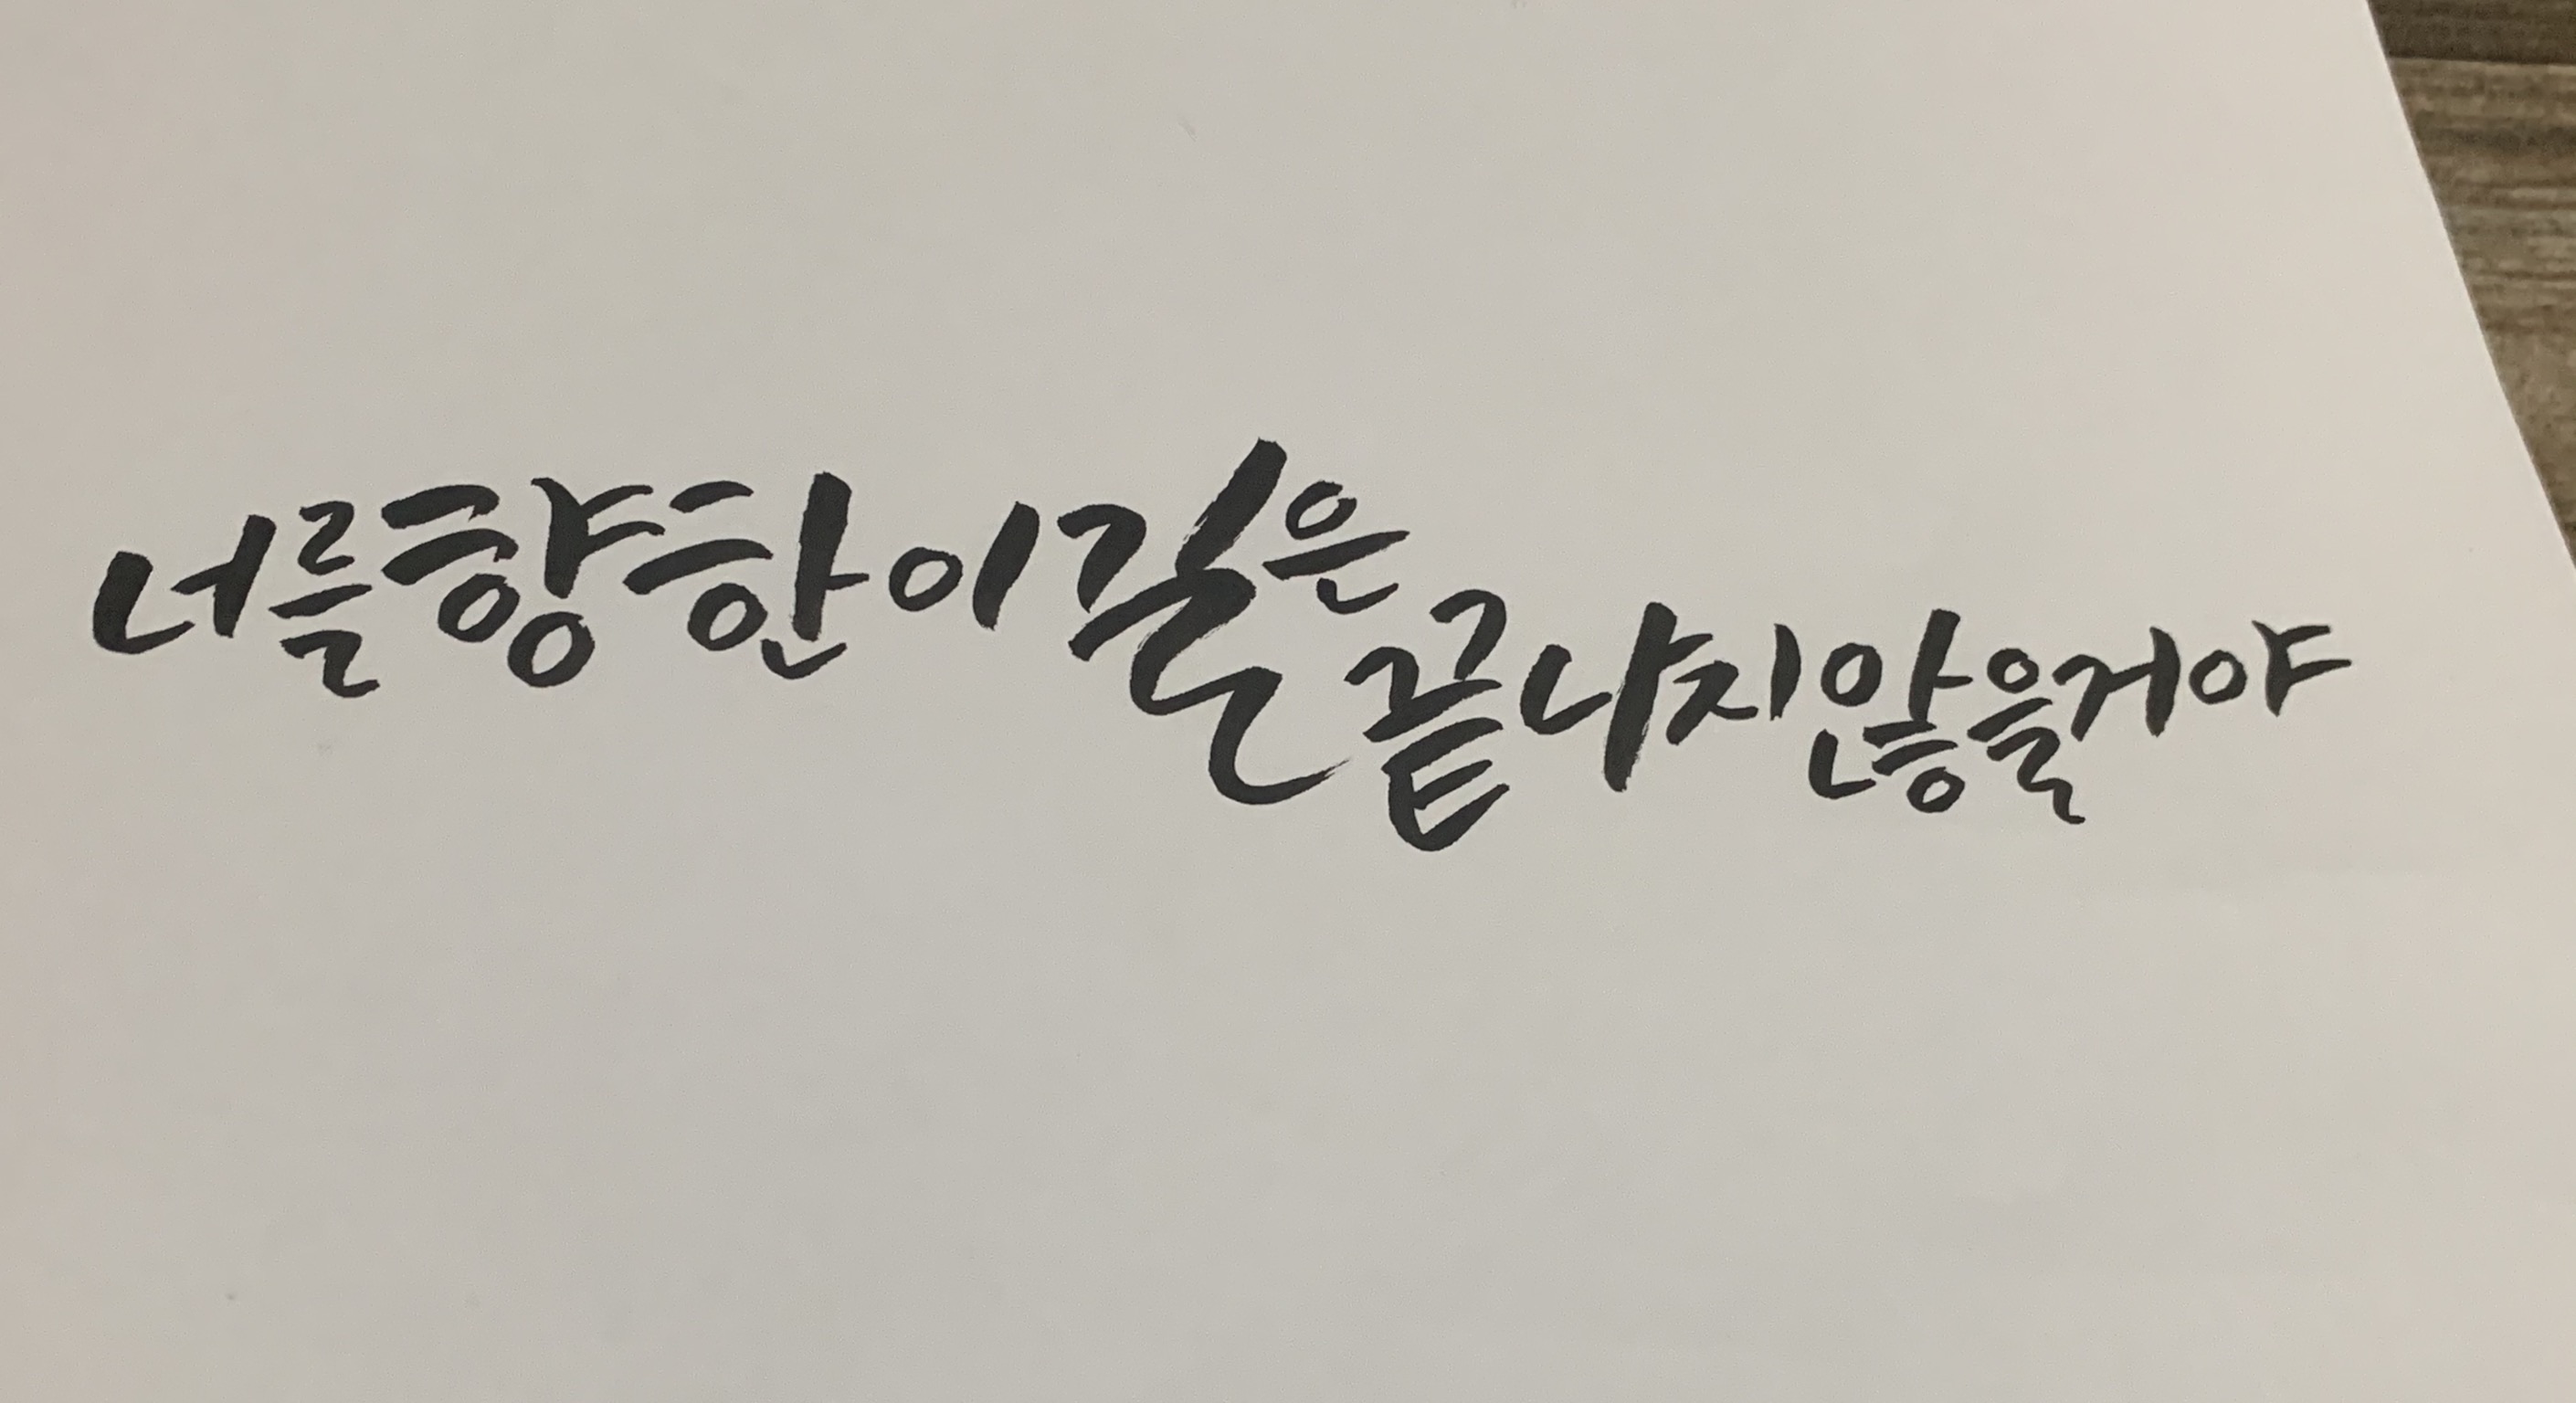 너를 향한 이 길은
끝나지 않을 거야